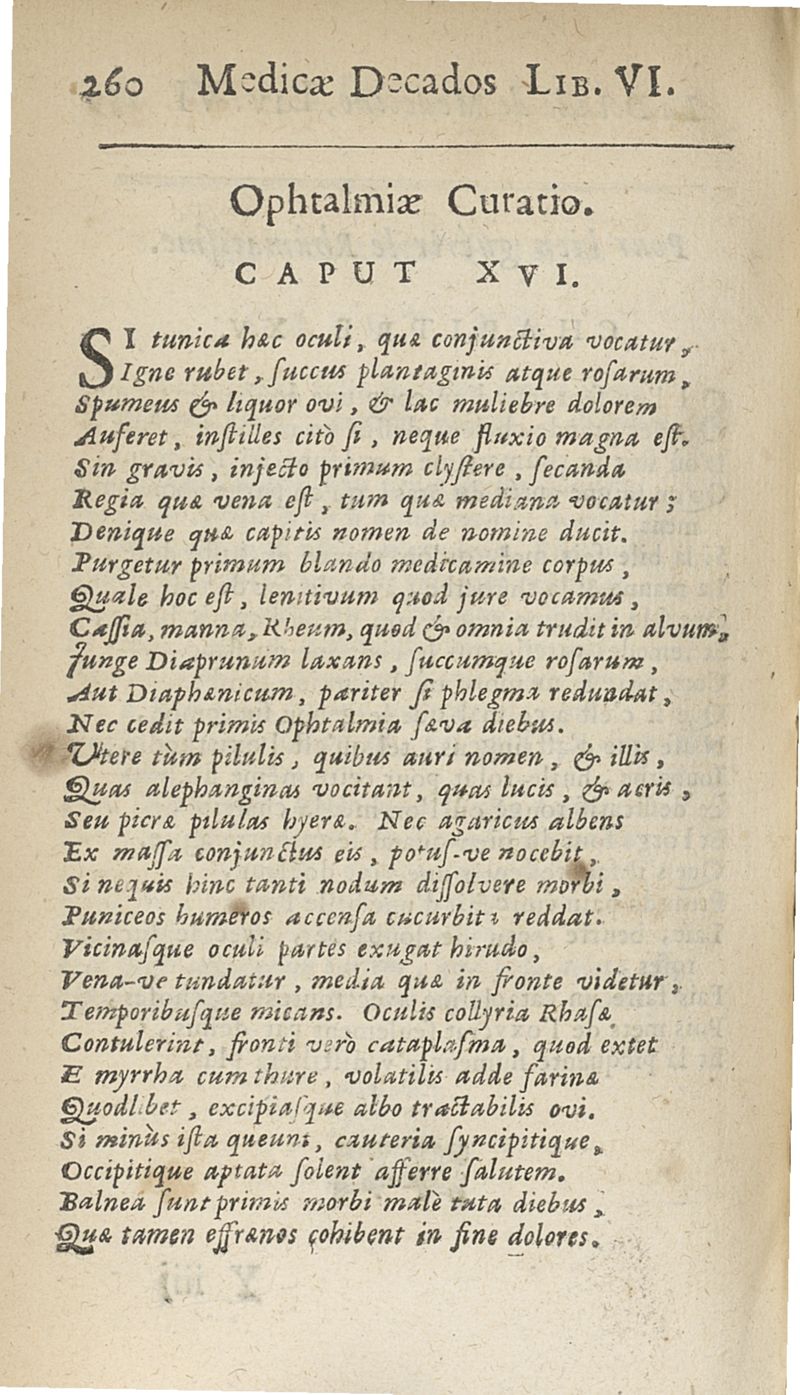 260 Medicæ Decados LIB. VI.
Ophtalmiæ Curatio.
CAPUT XVI.
SI tunica hæc oculi, quæ conjunctiva vocatur,
Igne rubet, succus plantaginis atque rosarum,
Spumeus & liquor ovi, & lac muliebre dolorem
Auferet, instilles citò si, neque fluxio magna est.
Sin gravis, injecto primum clystere, secanda
Regia quæ vena est, tum quæ mediana vocatur;
Denique quæ capitis nomen de nomine ducit.
Purgetur primum blando medicamine corpus,
Quale hoc est, lenitivum quod jure vocamus,
Cassia, manna, Rheum, quod & omnia trudit in alvum,
Junge Diaprunum laxans, succumque rosarum,
Aut Diaphænicum, pariter si phlegma redundat,
Nec cedit primis Ophtalmia sæva diebus.
Vtere tùm pilulis, quibus auri nomen, & illis,
Quas alephanginas vocitant, quas lucis, & aeris,
Seu picræ pilulas hyeræ. Nec agaricus albens
Ex massa conjunctus eis, potus-ve nocebit,
Si nequis hinc tanti nodum dissolvere morbi,
Puniceos humeros accensa cucurbita reddat.
Vicinasque oculi partes exugat hirudo,
Vena-ve tundatur, media quæ in fronte videtur,
Temporibusque micans. Oculis collyria Rhasæ
Contulerint, fronti verò cataplasma, quod extet
E myrrha cum thure, volatilis adde farinæ
Quodlibet, excipiasque albo tractabilis ovi.
Si minùs ista queunt, cauteria syncipitique,
Occipitique aptata solent afferre salutem.
Balnea sunt primis morbi malè tuta diebus,
Quæ tamen effrænos cohibent in fine dolores.